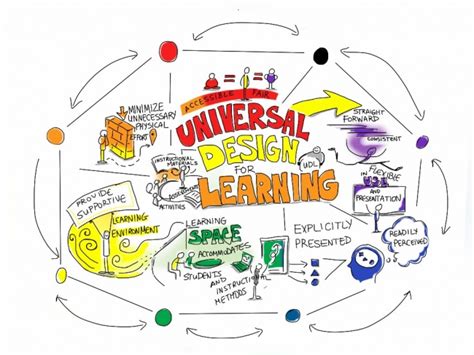 ACCESSIBLE FAIR
UNIVERSAL
DESIGN
FOR
LEARNING
UDL
MINIMIZE
UNNECESSARY
PHYSICAL
EFFORT
INSTRUCTIONAL
MATERIALS
ACTIVITIES
STRAIGHT
FORWARD
CONSISTENT
IN FLEXIBLE
USE
AND
PRESENTATION
PROVIDE
SUPPORTIVE
LEARNING
ENVIRONMENT
LEARNING
SPACE
ACCOMMODATES
STUDENTS
AND INSTRUCTIONAL
METHODS
EXPLICITLY
PRESENTED
READILY
PERCEIVED